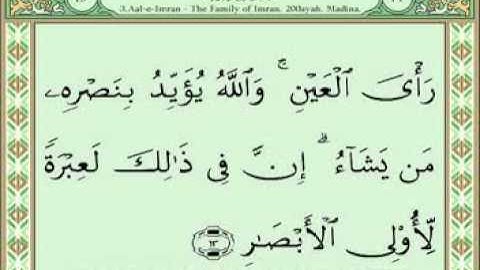 3.Aal-e-Imran - The Family of Imran. 200ayah. Madina.
رَأْىَ ٱلْعَيْنِ ۚ وَٱللَّهُ يُؤَيِّدُ بِنَصْرِهِۦ
مَن يَشَآءُ ۗ إِنَّ فِى ذَٰلِكَ لَعِبْرَةً
لِّأُو۟لِى ٱلْأَبْصَـٰرِ ﴿١٣﴾